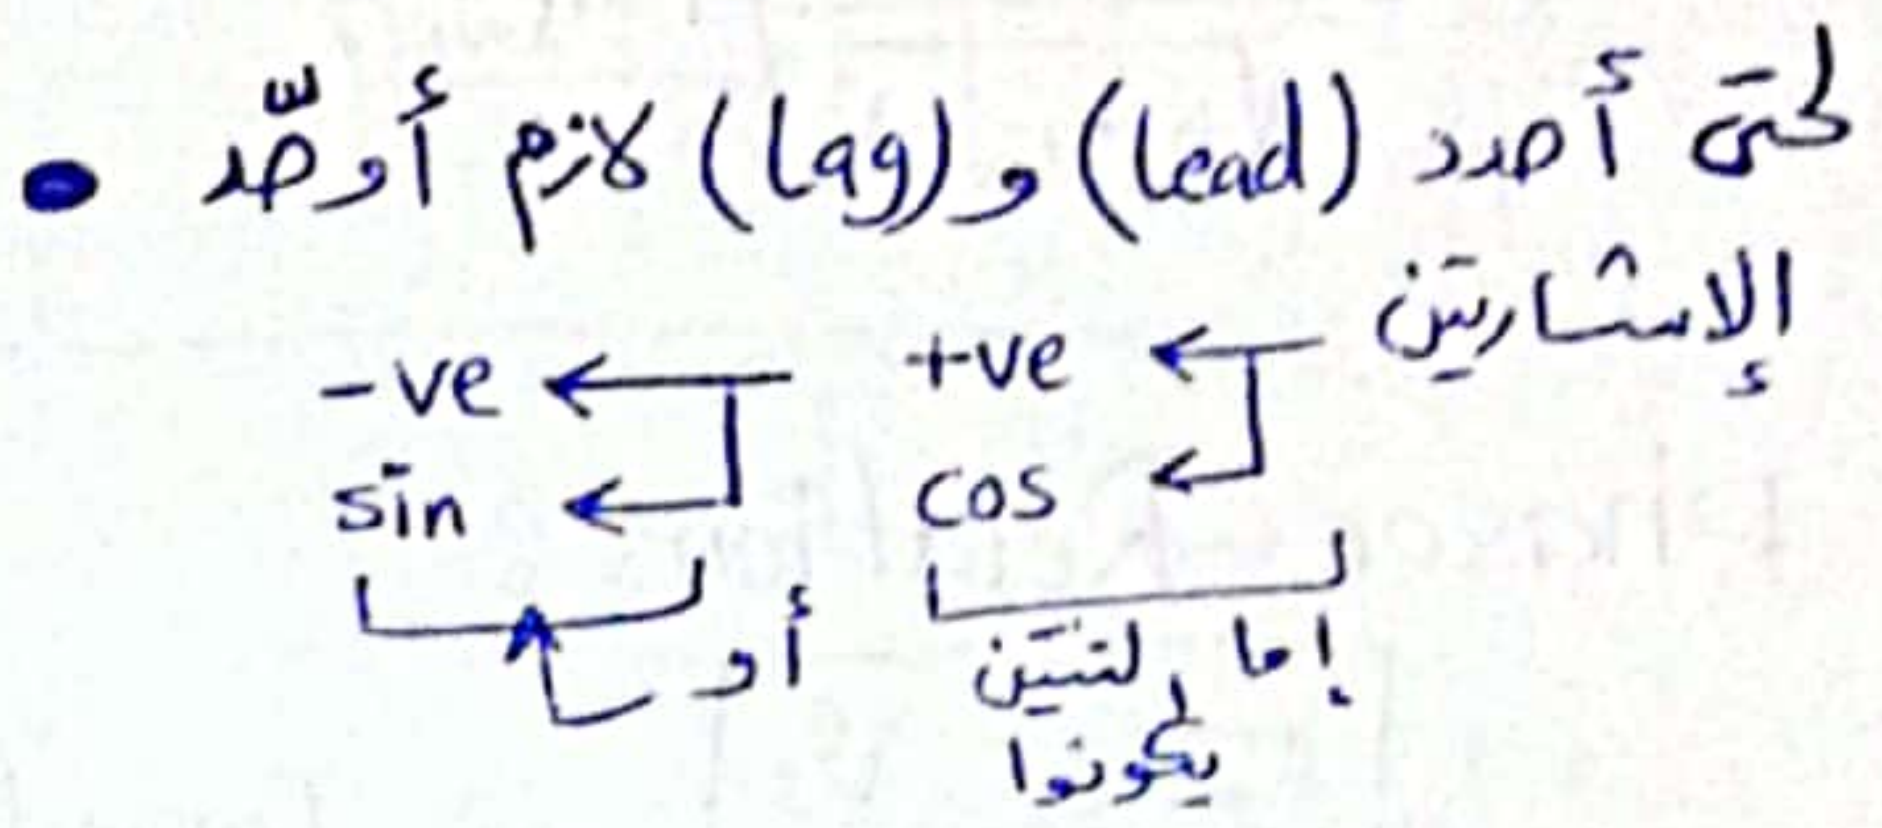 • لحتى أحدد (lead) و (lag) لازم أوحّد
الإشارتين ← +ve ← -ve
← cos ← sin
إما لتنين أو
يكونوا